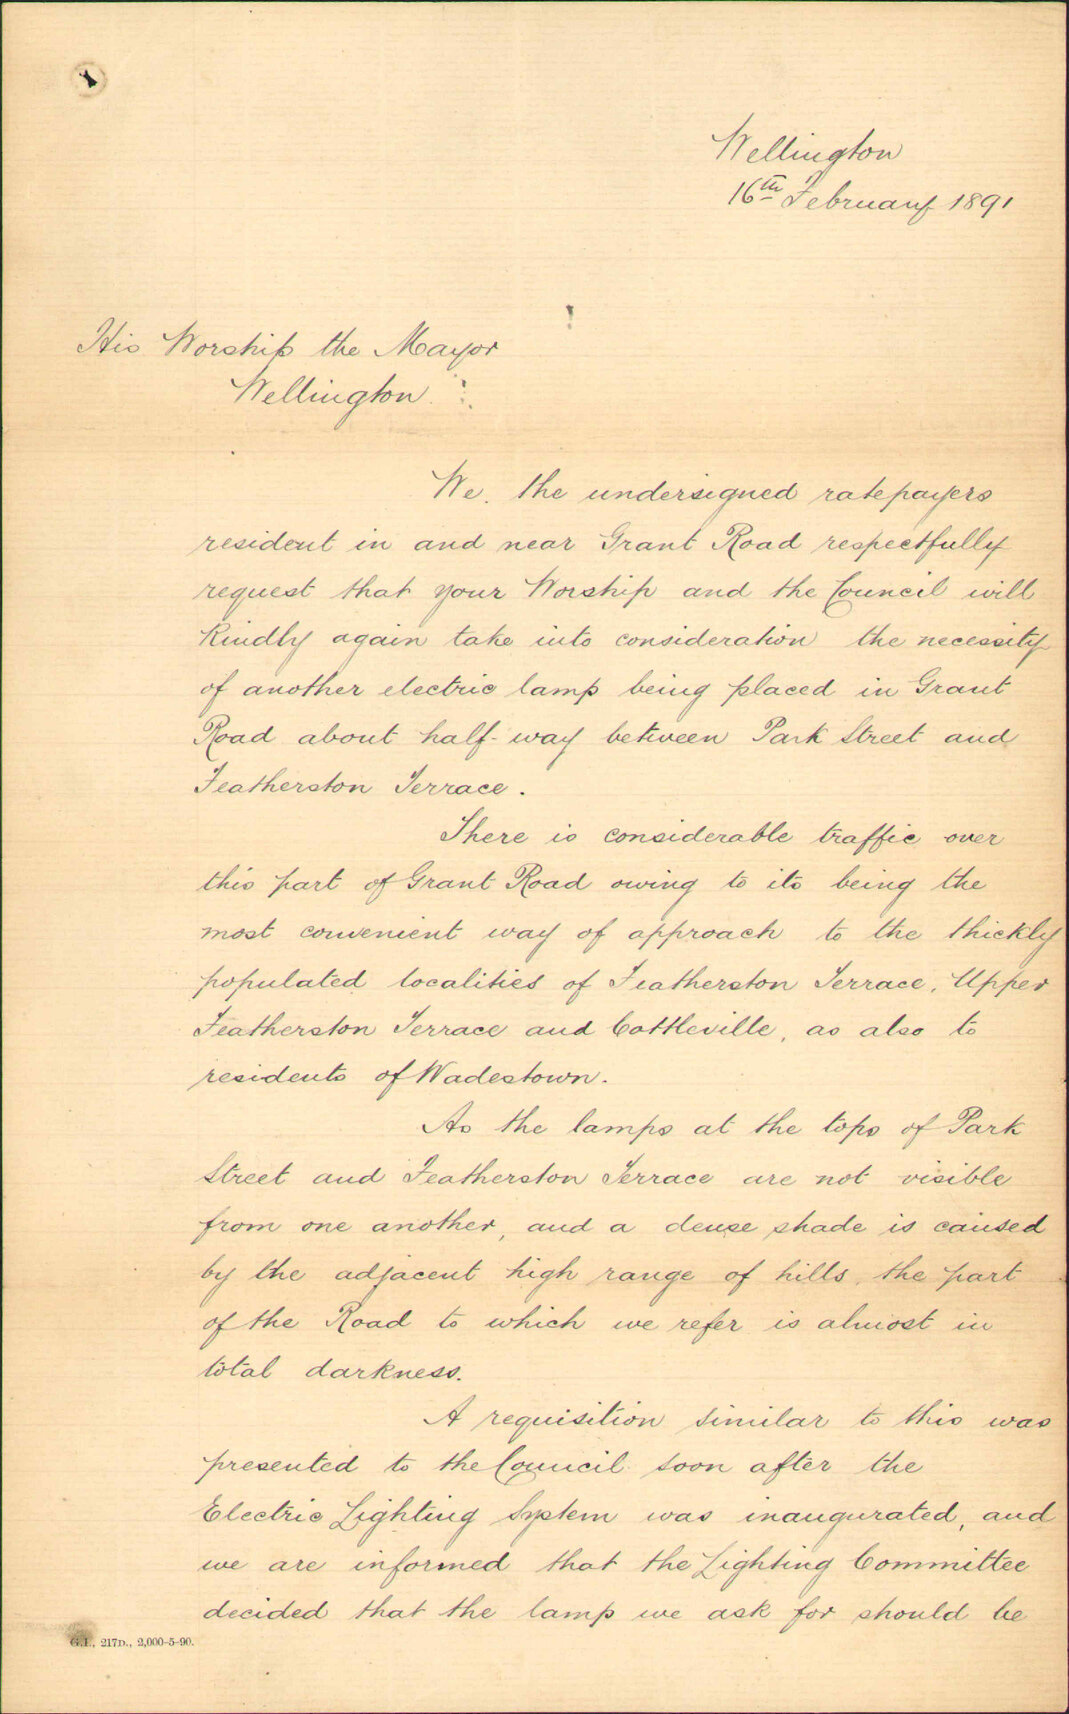 Wellington
16th February 1891
His Worship the Mayor
Wellington
We, the undersigned ratepayers
resident in and near Grant Road respectfully
request that your Worship and the Council will
kindly again take into consideration the necessity
of another electric lamp being placed in Grant
Road about half-way between Park Street and
Featherston Terrace.
There is considerable traffic over
this part of Grant Road owing to its being the
most convenient way of approach to the thickly
populated localities of Featherston Terrace, Upper
Featherston Terrace and Cottleville, as also to
residents of Wadestown.
As the lamps at the tops of Park
Street and Featherston Terrace are not visible
from one another, and a dense shade is caused
by the adjacent high range of hills, the part
of the Road to which we refer is almost in
total darkness.
A requisition similar to this was
presented to the Council soon after the
Electric Lighting System was inaugurated, and
we are informed that the Lighting Committee
decided that the lamp we ask for should be
G.I., 217D., 2,000-5-90.